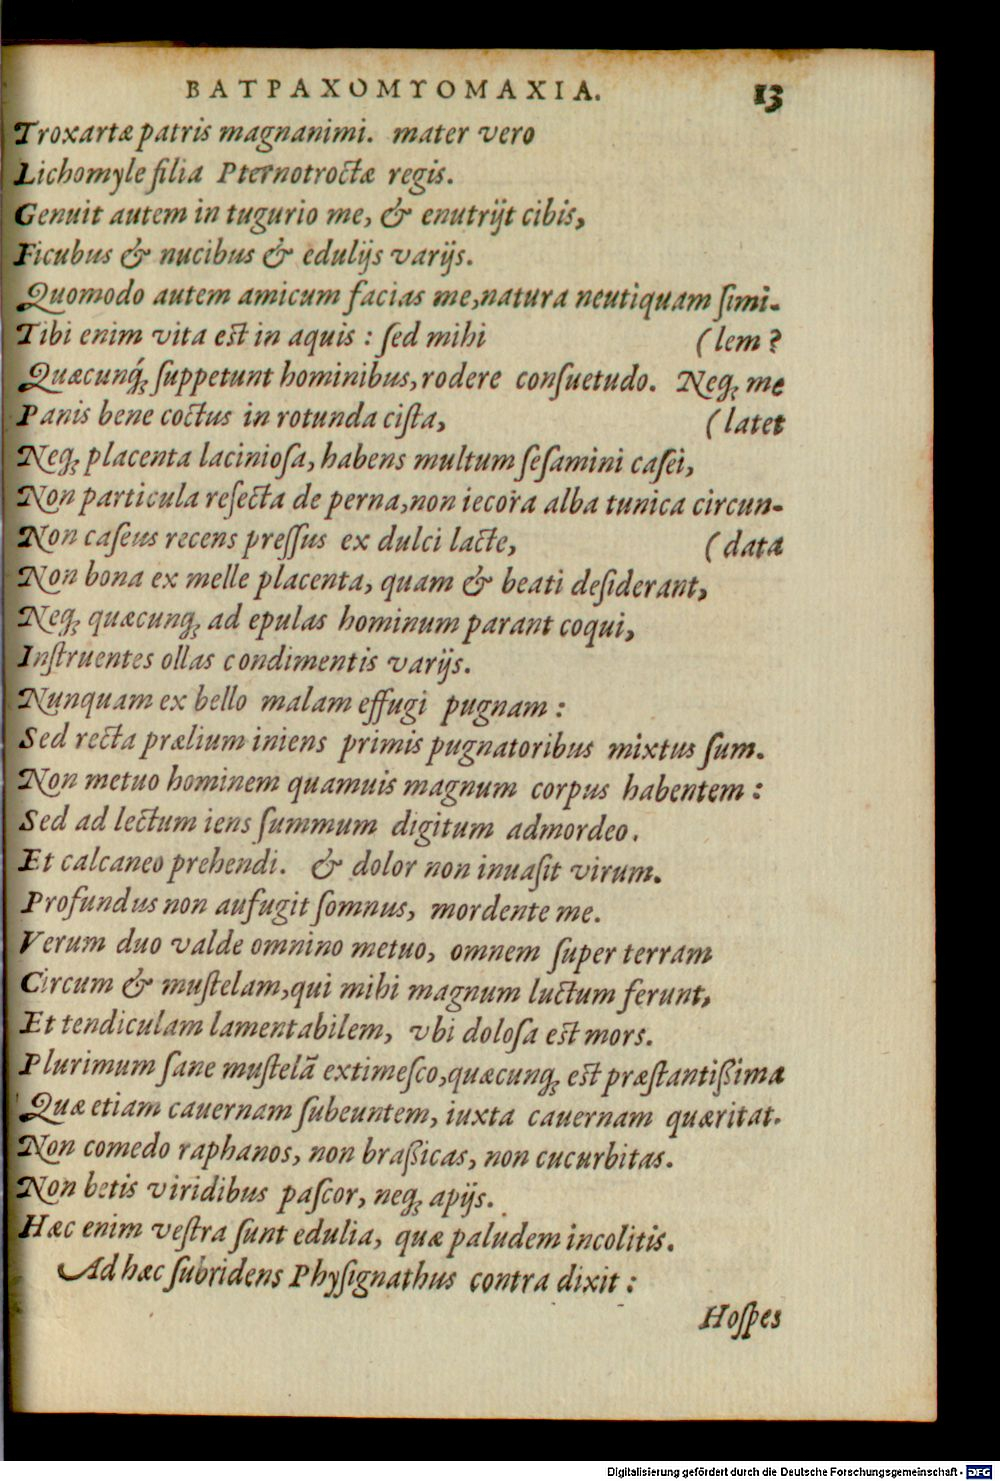 ΒΑΤΡΑΧΟΜΥΟΜΑΧΙΑ. 13
Troxartæ patris magnanimi. mater vero
Lichomyle filia Pternotroctæ regis.
Genuit autem in tugurio me, & enutrijt cibis,
Ficubus & nucibus & edulijs varijs.
Quomodo autem amicum facias me,natura neutiquam ſimi-
Tibi enim vita est in aquis : ſed mihi (lem ?
Quæcunq́; ſuppetunt hominibus,rodere conſuetudo. Neq; me
Panis bene coctus in rotunda ciſta, (latet
Neq; placenta lacinioſa, habens multum ſeſamini caſei,
Non particula reſecta de perna,non iecora alba tunica circun-
Non caſeus recens preſſus ex dulci lacte, (data
Non bona ex melle placenta, quam & beati deſiderant,
Neq; quæcunq; ad epulas hominum parant coqui,
Inſtruentes ollas condimentis varijs.
Nunquam ex bello malam effugi pugnam :
Sed recta prælium iniens primis pugnatoribus mixtus ſum.
Non metuo hominem quamuis magnum corpus habentem :
Sed ad lectum iens ſummum digitum admordeo.
Et calcaneo prehendi. & dolor non inuaſit virum.
Profundus non aufugit ſomnus, mordente me.
Verum duo valde omnino metuo, omnem ſuper terram
Circum & muſtelam,qui mihi magnum luctum ferunt,
Et tendiculam lamentabilem, vbi doloſa est mors.
Plurimum ſane muſtelā extimeſco,quæcunq; est præſtantißima
Quæ etiam cauernam ſubeuntem, iuxta cauernam quæritat.
Non comedo raphanos, non braßicas, non cucurbitas.
Non betis viridibus paſcor, neq; apijs.
Hæc enim veſtra ſunt edulia, quæ paludem incolitis.
Ad hæc ſubridens Phyſignathus contra dixit :
Hoſpes
Digitalisierung gefördert durch die Deutsche Forschungsgemeinschaft - DFG